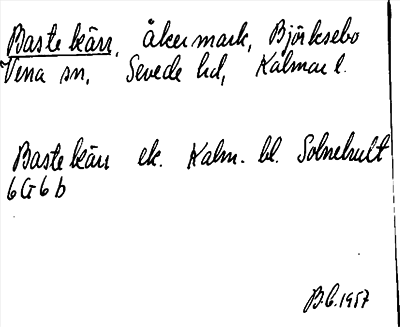 Bastekärr, åkermark, Björksebo
Vena sn, Sevede hd, Kalmar l.
Bastekärr ek. Kalm. bl. Solnehult
6G6b
B.C. 1957